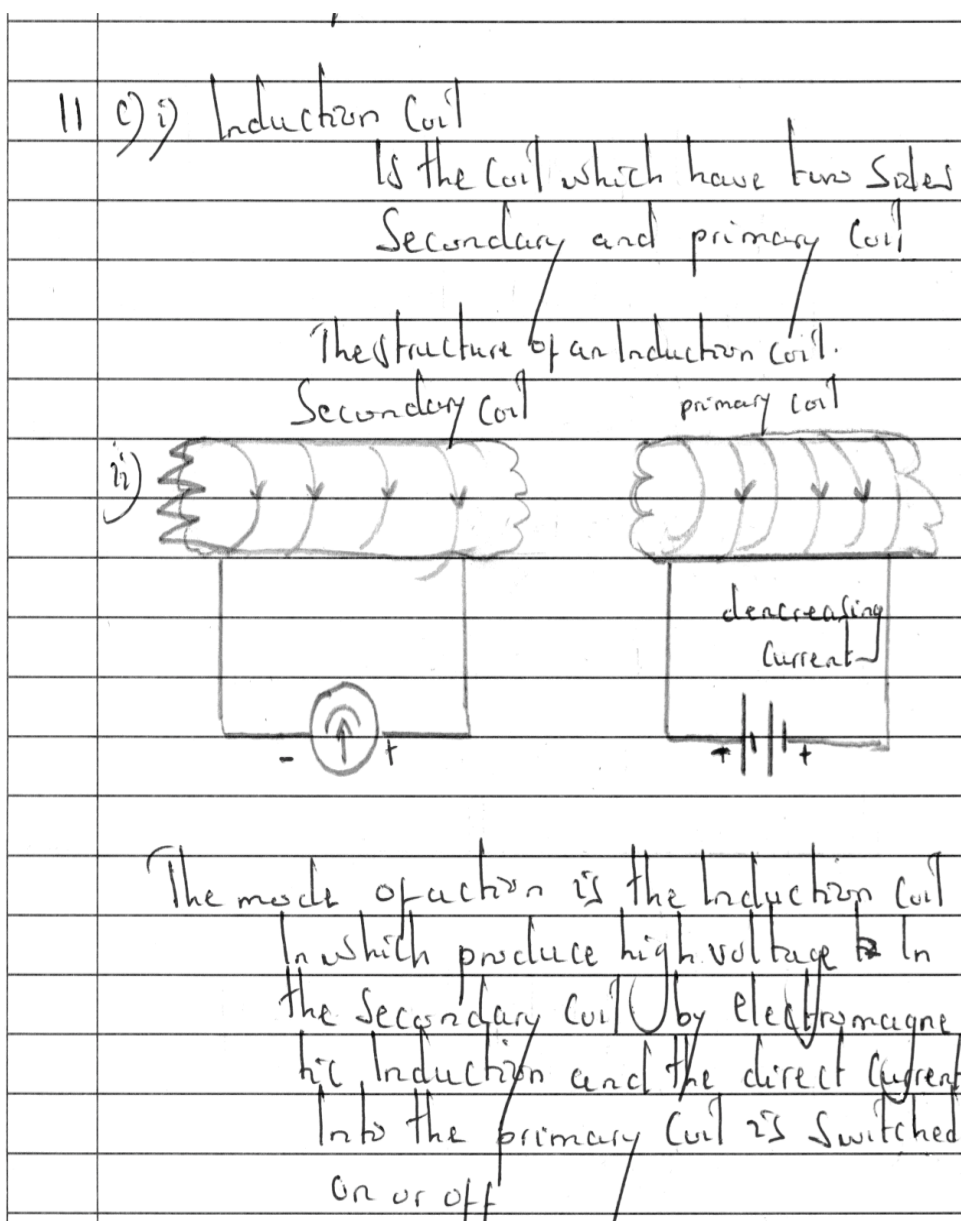 11 c) i) Induction Coil
Is the Coil which have two Sides
Secondary and primary Coil
The structure of an Induction coil.
Secondary coil primary coil
ii)
dencreasing
Current
- + + +
The mode of action is the Induction Coil
In which produce high voltage In
the Secondary Coil by electromagne
tic Induction and the direct Current
Into the primary Coil is Switched
on or off